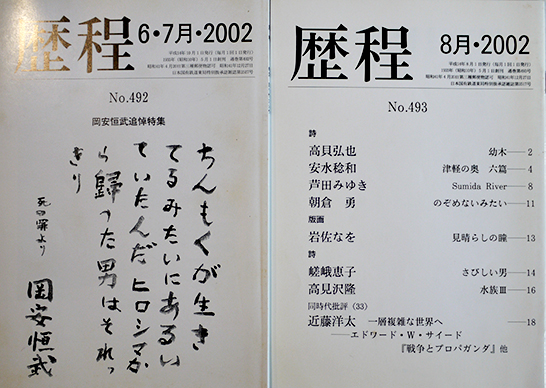 歴程
6・7月・2002
No.492
岡安恒武追悼特集
ちんもくが生き
てるみたいにあるい
ていたんだ ヒロシマか
ら歸った男はそれっ
きり
岡安恒武
歴程
8月・2002
No.493
詩
高貝弘也 幼木──2
安水稔和 津軽の奥 六篇──4
芦田みゆき Sumida River──8
朝倉 勇 のぞめないみたい──11
版画
岩佐なを 見晴らしの瞳──13
詩
嵯峨恵子 さびしい男──14
高見沢隆 水族Ⅲ──16
同時代批評(33)
近藤洋太 一層複雑な世界へ──18
──エドワード・W・サイード
『戦争とプロパガンダ』他